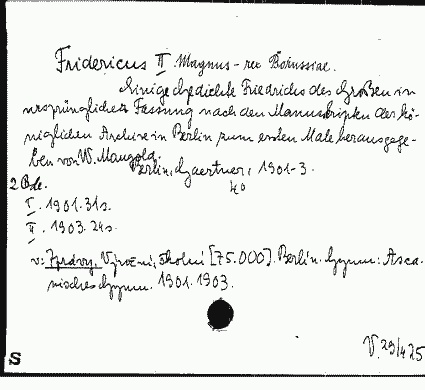 Fridericus II Magnus - rex Borussiae.
Einige Gedichte Friedrichs des Großen in
ursprünglicher Fassung nach den Manuskripten der kö-
niglichen Archive in Berlin zum ersten Male herausgege-
ben von W. Mangold.
Berlin, Gaertner, 1901-3.
4o
2 Bde.
I. 1901. 31 s.
II. 1903. 24 s.
v: Zprávy, Výroční, školní [75.000]. Berlin. Gymn: Asca-
nisches Gymn. 1901. 1903.
V. 29/4 25
S